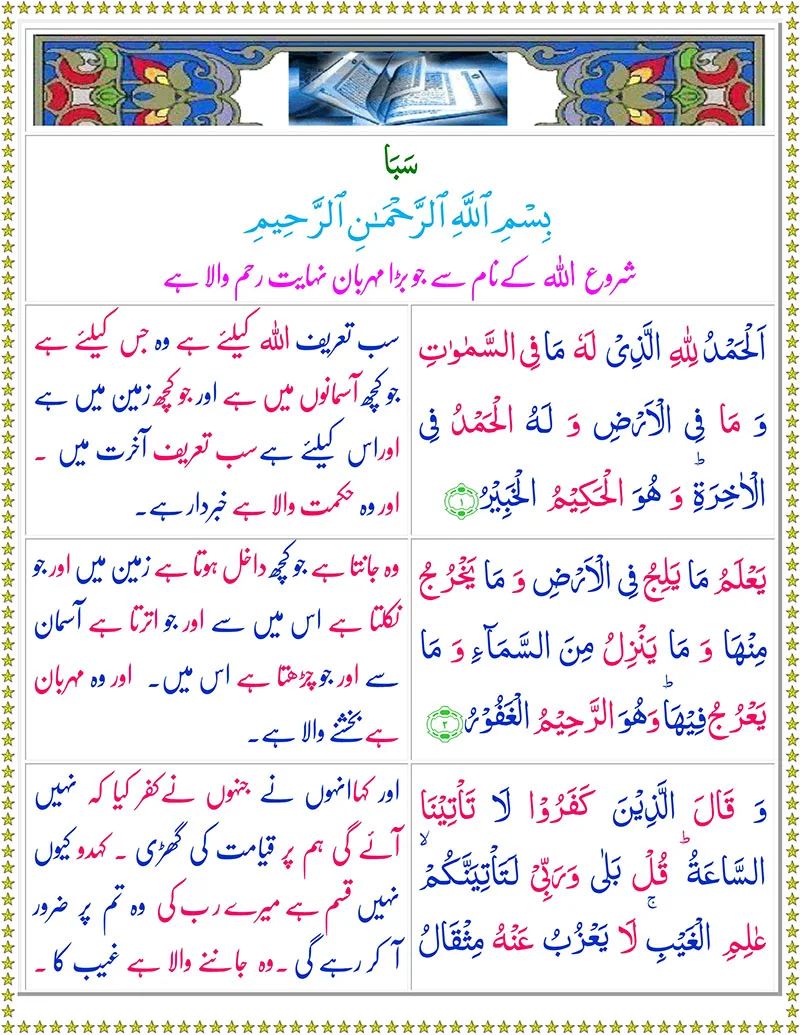 سَبَا
بِسْمِ ٱللَّهِ ٱلرَّحْمَـٰنِ ٱلرَّحِيمِ
شروع اللہ کے نام سے جو بڑا مہربان نہایت رحم والا ہے
اَلْحَمْدُ لِلّٰهِ الَّذِیْ لَهٗ مَا فِی السَّمٰوٰتِ
وَ مَا فِی الْاَرْضِ وَ لَهُ الْحَمْدُ فِی
الْاٰخِرَةِؕ وَ هُوَ الْحَكِیْمُ الْخَبِیْرُ ۱
سب تعریف اللہ کیلئے ہے وہ جس کیلئے ہے
جو کچھ آسمانوں میں ہے اور جو کچھ زمین میں ہے
اور اس کیلئے ہے سب تعریف آخرت میں ۔
اور وہ حکمت والا ہے خبردار ہے۔
یَعْلَمُ مَا یَلِجُ فِی الْاَرْضِ وَ مَا یَخْرُجُ
مِنْهَا وَ مَا یَنْزِلُ مِنَ السَّمَآءِ وَ مَا
یَعْرُجُ فِیْهَاؕ وَهُوَ الرَّحِیْمُ الْغَفُوْرُ ۲
وہ جانتا ہے جو کچھ داخل ہوتا ہے زمین میں اور جو
نکلتا ہے اس میں سے اور جو اترتا ہے آسمان
سے اور جو چڑھتا ہے اس میں۔ اور وہ مہربان
ہے بخشنے والا ہے۔
وَ قَالَ الَّذِیْنَ كَفَرُوْا لَا تَاْتِیْنَا
السَّاعَةُؕ قُلْ بَلٰی وَرَبِّیْ لَتَاْتِیَنَّكُمْۙ
عٰلِمِ الْغَیْبِۚ لَا یَعْزُبُ عَنْهُ مِثْقَالُ
اور کہا انہوں نے جنہوں نے کفر کیا کہ نہیں
آئے گی ہم پر قیامت کی گھڑی ۔ کہدو کیوں
نہیں قسم ہے میرے رب کی وہ تم پر ضرور
آ کر رہے گی ۔وہ جاننے والا ہے غیب کا ۔